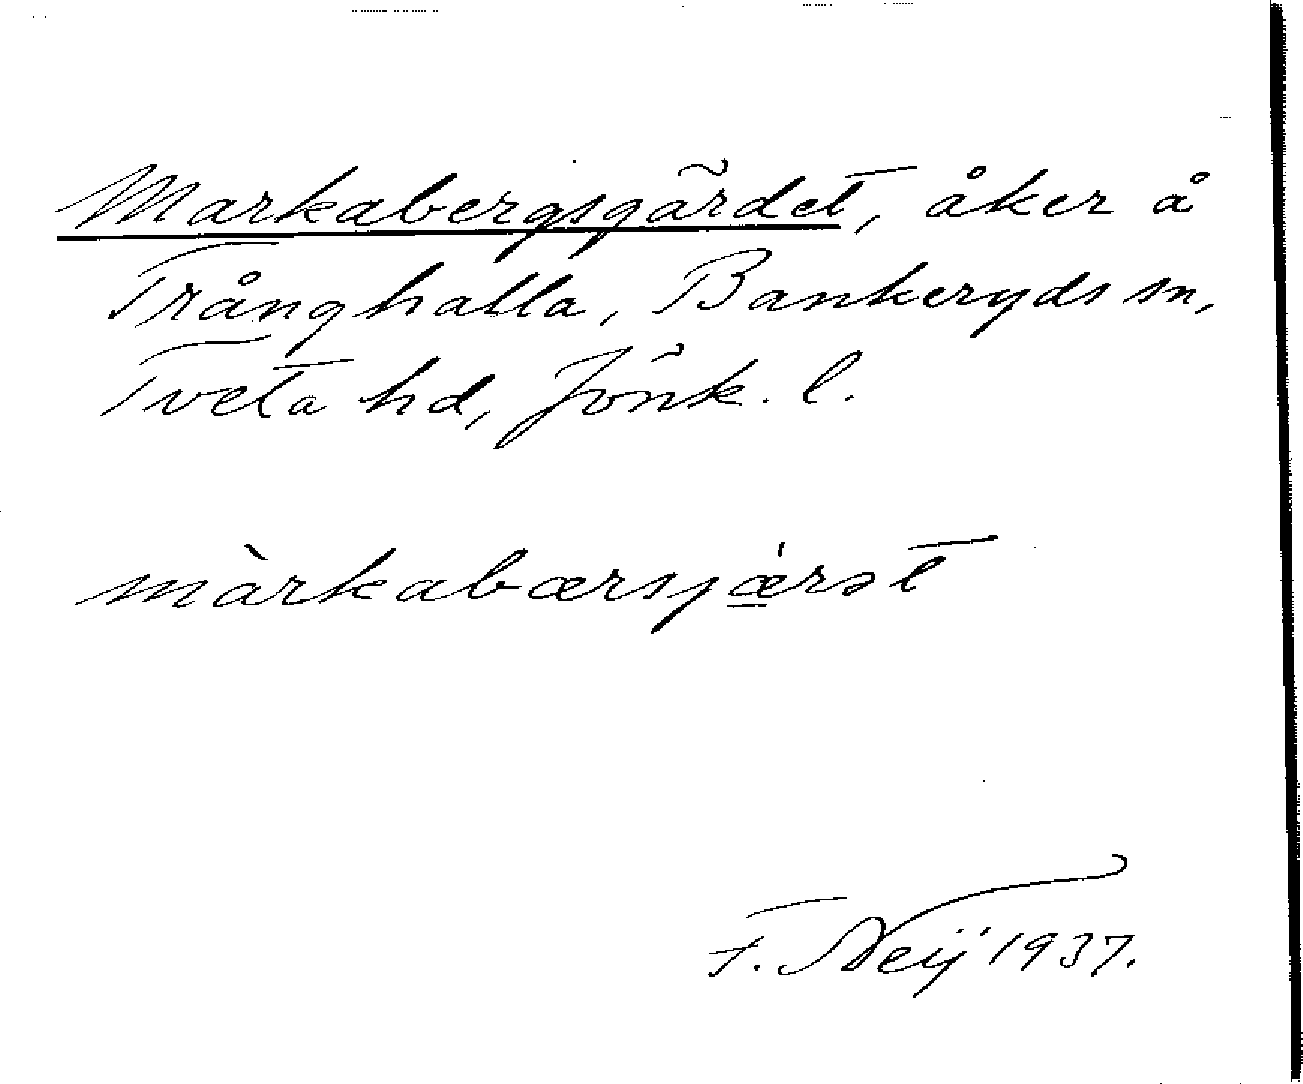 Markabergsgärdet, åker å
Trånghalla, Bankeryds sn,
Tveta hd, Jönk. l.
màrkabærsjǽ̲rət
F. Neij 1937.